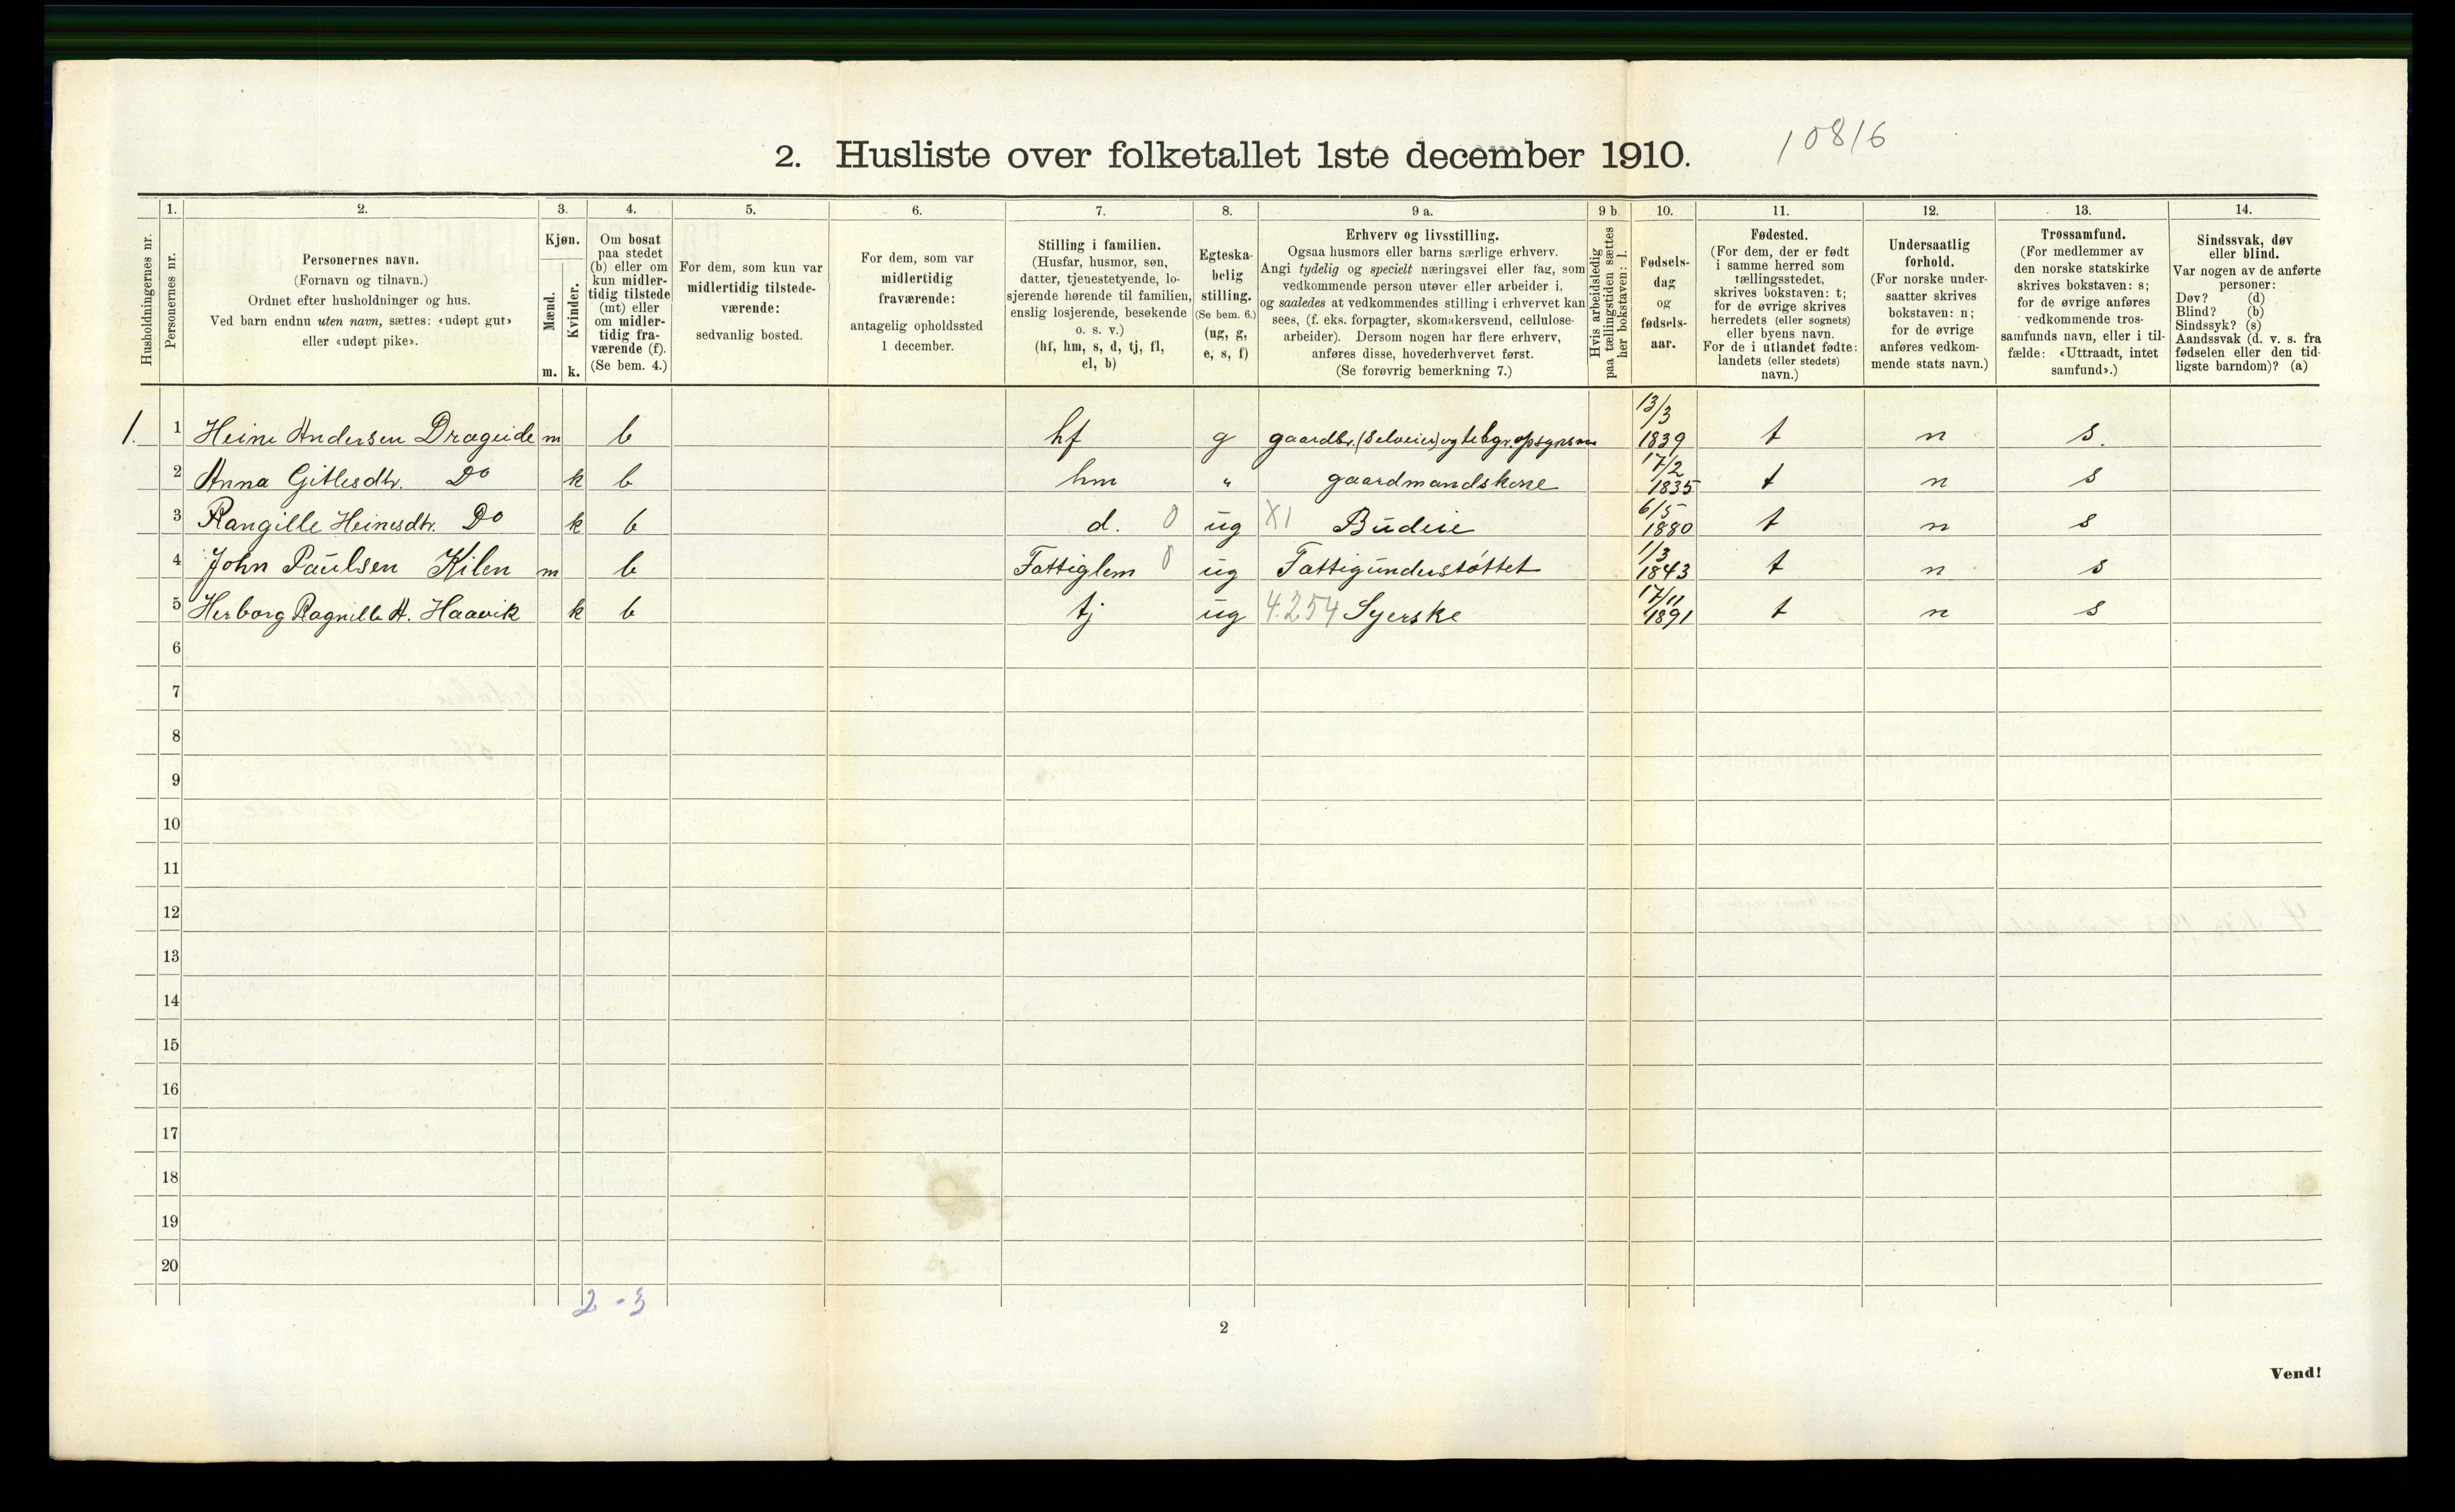 10816
2. Husliste over folketallet 1ste december 1910.
Husholdningernes nr.
1.
Personernes nr.
2.
Personernes navn.
(Fornavn og tilnavn.)
Ordnet efter husholdninger og hus.
Ved barn endnu uten navn, sættes: «udøpt gut»
eller «udøpt pike».
3.
Kjøn.
Mænd.
Kvinder.
m. k.
4.
Om bosat
paa stedet
(b) eller om
kun midler-
tidig tilstede
(mt) eller
om midler-
tidig fra-
værende (f).
(Se bem. 4.)
5.
For dem, som kun var
midlertidig tilstede-
værende:
sedvanlig bosted.
6.
For dem, som var
midlertidig
fraværende:
antagelig opholdssted
1 december.
7.
Stilling i familien.
(Husfar, husmor, søn,
datter, tjenestetyende, lo-
sjerende hørende til familien,
enslig losjerende, besøkende
o. s. v.)
(hf, hm, s, d, tj, fl,
el, b)
8.
Egteska-
belig
stilling.
(Se bem. 6.)
(ug, g,
e, s, f)
9 a.
Erhverv og livsstilling.
Ogsaa husmors eller barns særlige erhverv.
Angi tydelig og specielt næringsvei eller fag, som
vedkommende person utøver eller arbeider i,
og saaledes at vedkommendes stilling i erhvervet kan
sees, (f. eks. forpagter, skomakersvend, cellulose-
arbeider). Dersom nogen har flere erhverv,
anføres disse, hovederhvervet først.
(Se forøvrig bemerkning 7.)
9 b.
Hvis arbeidsledig
paa tællingstiden sættes
her bokstaven: l.
10.
Fødsels-
dag
og
fødsels-
aar.
11.
Fødested.
(For dem, der er født
i samme herred som
tællingsstedet,
skrives bokstaven: t;
for de øvrige skrives
herredets (eller sognets)
eller byens navn.
For de i utlandet fødte:
landets (eller stedets)
navn.)
12.
Undersaatlig
forhold.
(For norske under-
saatter skrives
bokstaven: n;
for de øvrige
anføres vedkom-
mende stats navn.)
13.
Trossamfund.
(For medlemmer av
den norske statskirke
skrives bokstaven: s;
for de øvrige anføres
vedkommende tros-
samfunds navn, eller i til-
fælde: «Uttraadt, intet
samfund».)
14.
Sindssvak, døv
eller blind.
Var nogen av de anførte
personer:
Døv? (d)
Blind? (b)
Sindssyk? (s)
Aandssvak (d. v. s. fra
fødselen eller den tid-
ligste barndom)? (a)
1. 1 Heine Andersen Drageide m b hf g gaardbr. (Selveier) og telegr. opsynsm 13/3 1839 t n s.
2 Anna Gitlesdtr. Do k b hm " gaardmandskone 17/2 1835 t n s
3 Rangille Heinesdtr. Do k b d. 0 ug X1 Budeie 6/5 1880 t n s
4 John Paulsen Kilen m b Fattiglem 0 ug Fattigunderstøttet 1/3 1843 t n s
5 Herborg Ragnille A. Haavik k b tj ug 4.254 Syerske 17/11 1891 t n s
6
7
8
9
10
11
12
13
14
15
16
17
18
19
20
2 - 3
2
Vend!